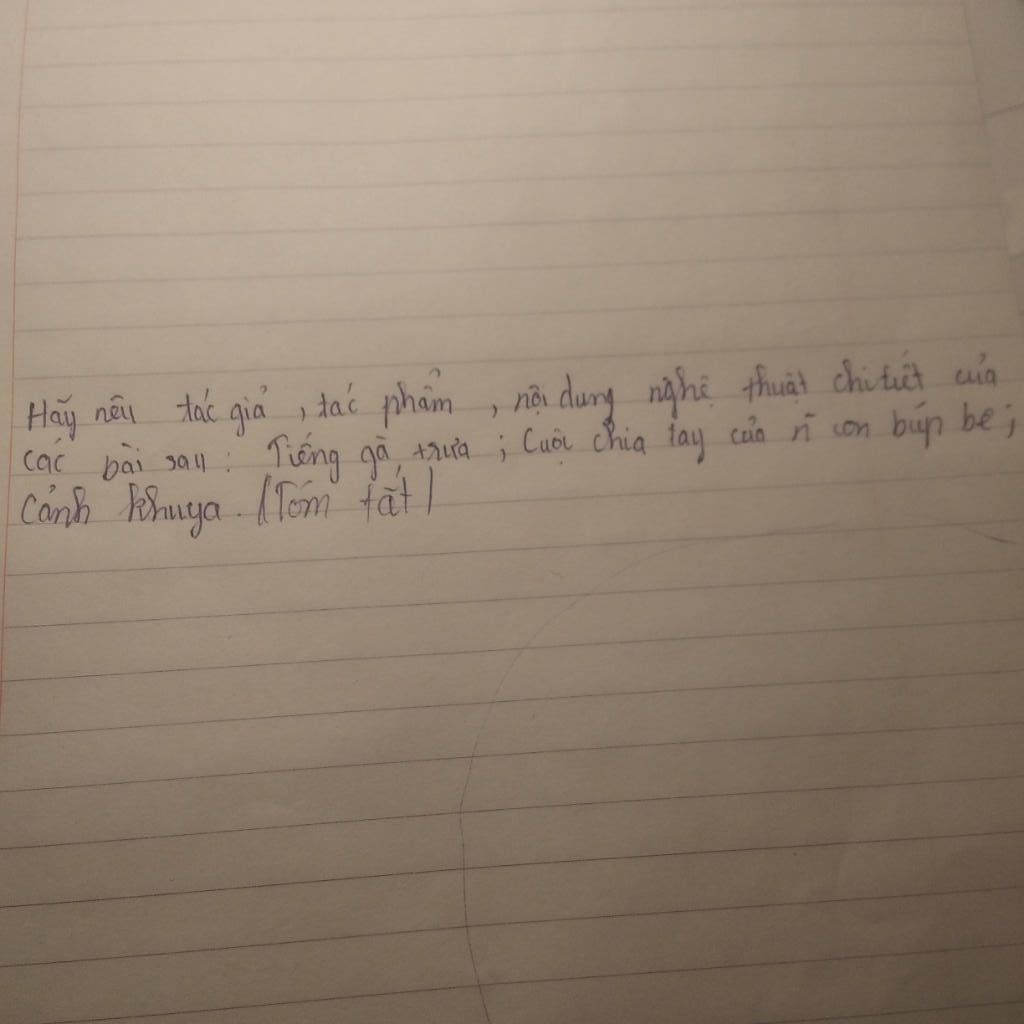 Hãy nêu tác giả, tác phẩm, nội dung nghệ thuật chi tiết của
các bài sau: Tiếng gà trưa; Cuộc chia tay của n~ con búp bê;
Cảnh khuya. (Tóm tắt)